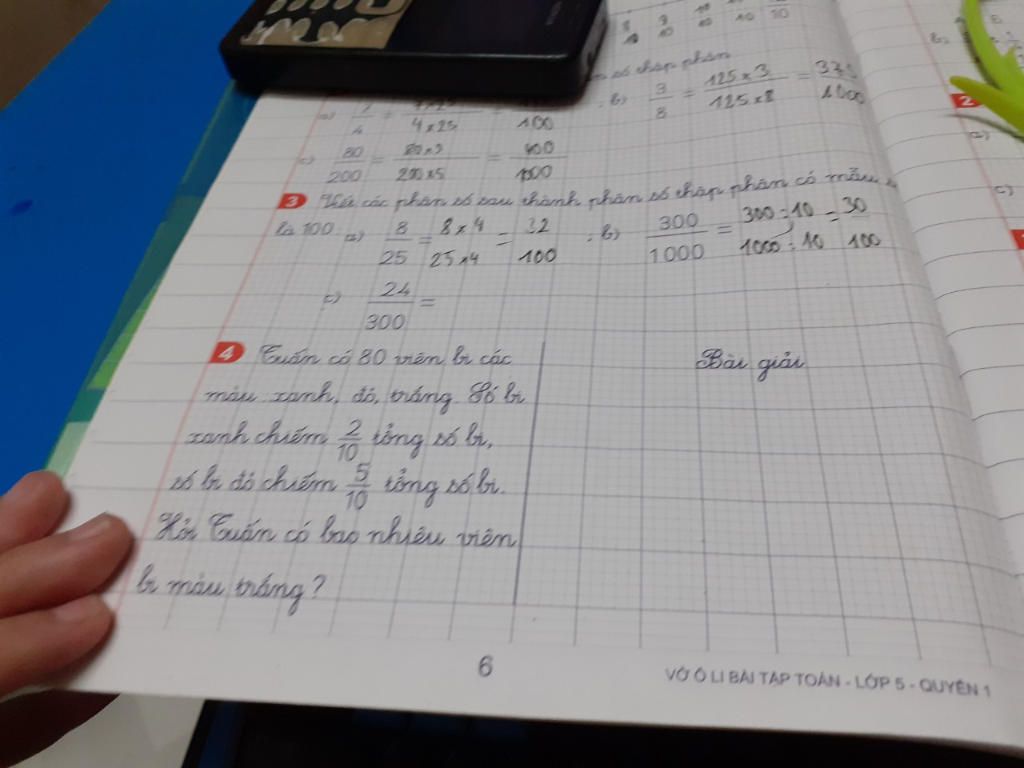 số thập phân
4×25 100 ; b) 3/8 = 125×3/125×8 = 375/1000
c) 80/200 = 80×5/200×5 = 400/1000
3 Viết các phân số sau thành phân số thập phân có mẫu
là 100 a) 8/25 = 8×4/25×4 = 32/100 ; b) 300/1000 = 300:10/1000:10 = 30/100
c) 24/300 =
4 Tuấn có 80 viên bi các
màu xanh, đỏ, trắng. Số bi
xanh chiếm 2/10 tổng số bi,
số bi đỏ chiếm 5/10 tổng số bi.
Hỏi Tuấn có bao nhiêu viên
bi màu trắng?
Bài giải
6
VỞ Ô LI BÀI TẬP TOÁN - LỚP 5 - QUYỂN 1